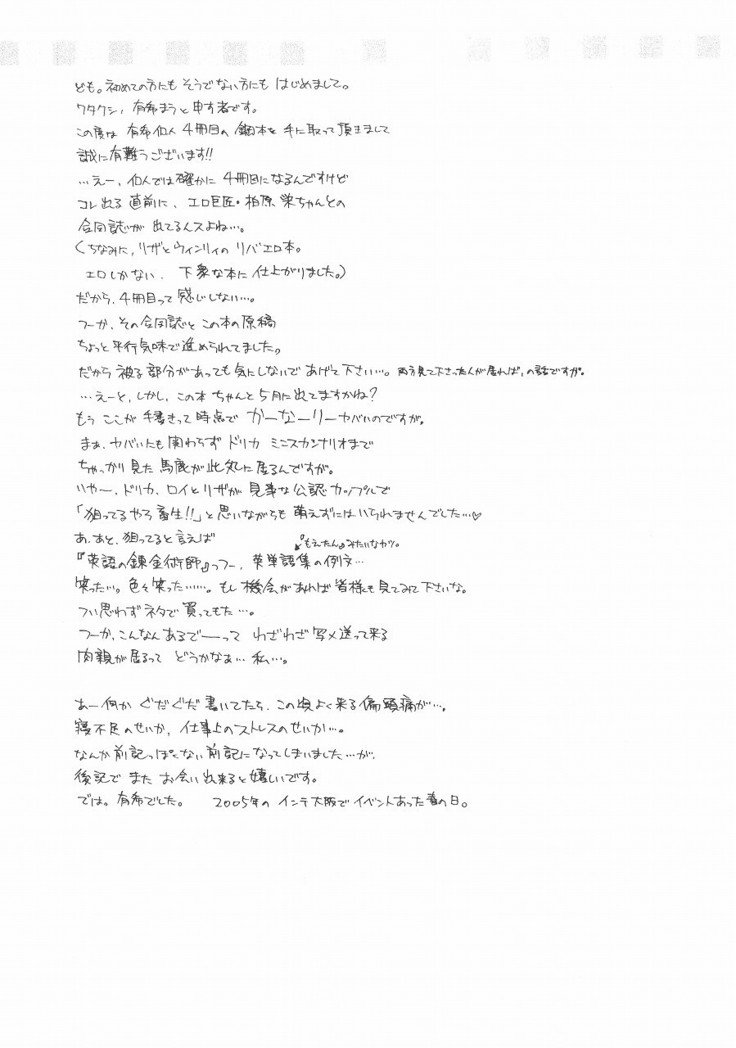 ども。初めての方にも そうでない方にも はじめまして。
ワタクシ、有希まうと申す者です。
この度は 有希個人 4冊目の 鋼本を 手に取って頂きまして
誠に有難うございます!!
…えー、個人では確かに 4冊目になるんですけど
コレ出る 直前に、エロ巨匠・柏原 栄ちゃんとの
合同誌が 出てるんスよね…。
(ちなみに、リザとウィンリィの リバエロ本。
エロしかない、下衆な本に 仕上がりました。)
だから、4冊目って 感じしない…。
つーか、その合同誌と この本の原稿
ちょっと平行気味で進められてました。
だから被る部分があっても気にしないで あげて下さい…。両方見て下さった人が居れば、の話ですが。
…えーと、しかし、この本 ちゃんと5月に出てますかね?
もう ここが 手書きって時点で かーなーりー ヤバいのですが。
まぁ、ヤバいにも関わらず ドリカ ミニスカシナリオまで
ちゃっかり見た 馬鹿が此処に居るんですが。
いやー、ドリカ、ロイとリザが 見事な公認カップルで
「狙ってるやろ畜生!!」と思いながらも 萌えずにはいられませんでした…♡
あ、あと、狙ってると言えば
『もえたん』みたいなヤツ。
『英語の錬金術師』っつー、英単語集の例文…
笑った…。色々笑った……。もし機会があれば皆様も見てみて下さいな。
つい思わずネタで買ってもた…。
つーか、こんなんあるでーーって わざわざ写メ送って来る
肉親が居るって どうかなぁ…私…。
あー何か ぐだぐだ書いてたら、この頃よく来る偏頭痛が…。
寝不足のせいか、仕事上のストレスのせいか…。
なんか前記っぽくない前記になってしまいました…が、
後記で また お会い出来ると嬉しいです。
では。有希でした。 2005年の インテ大阪で イベントあった春の日。